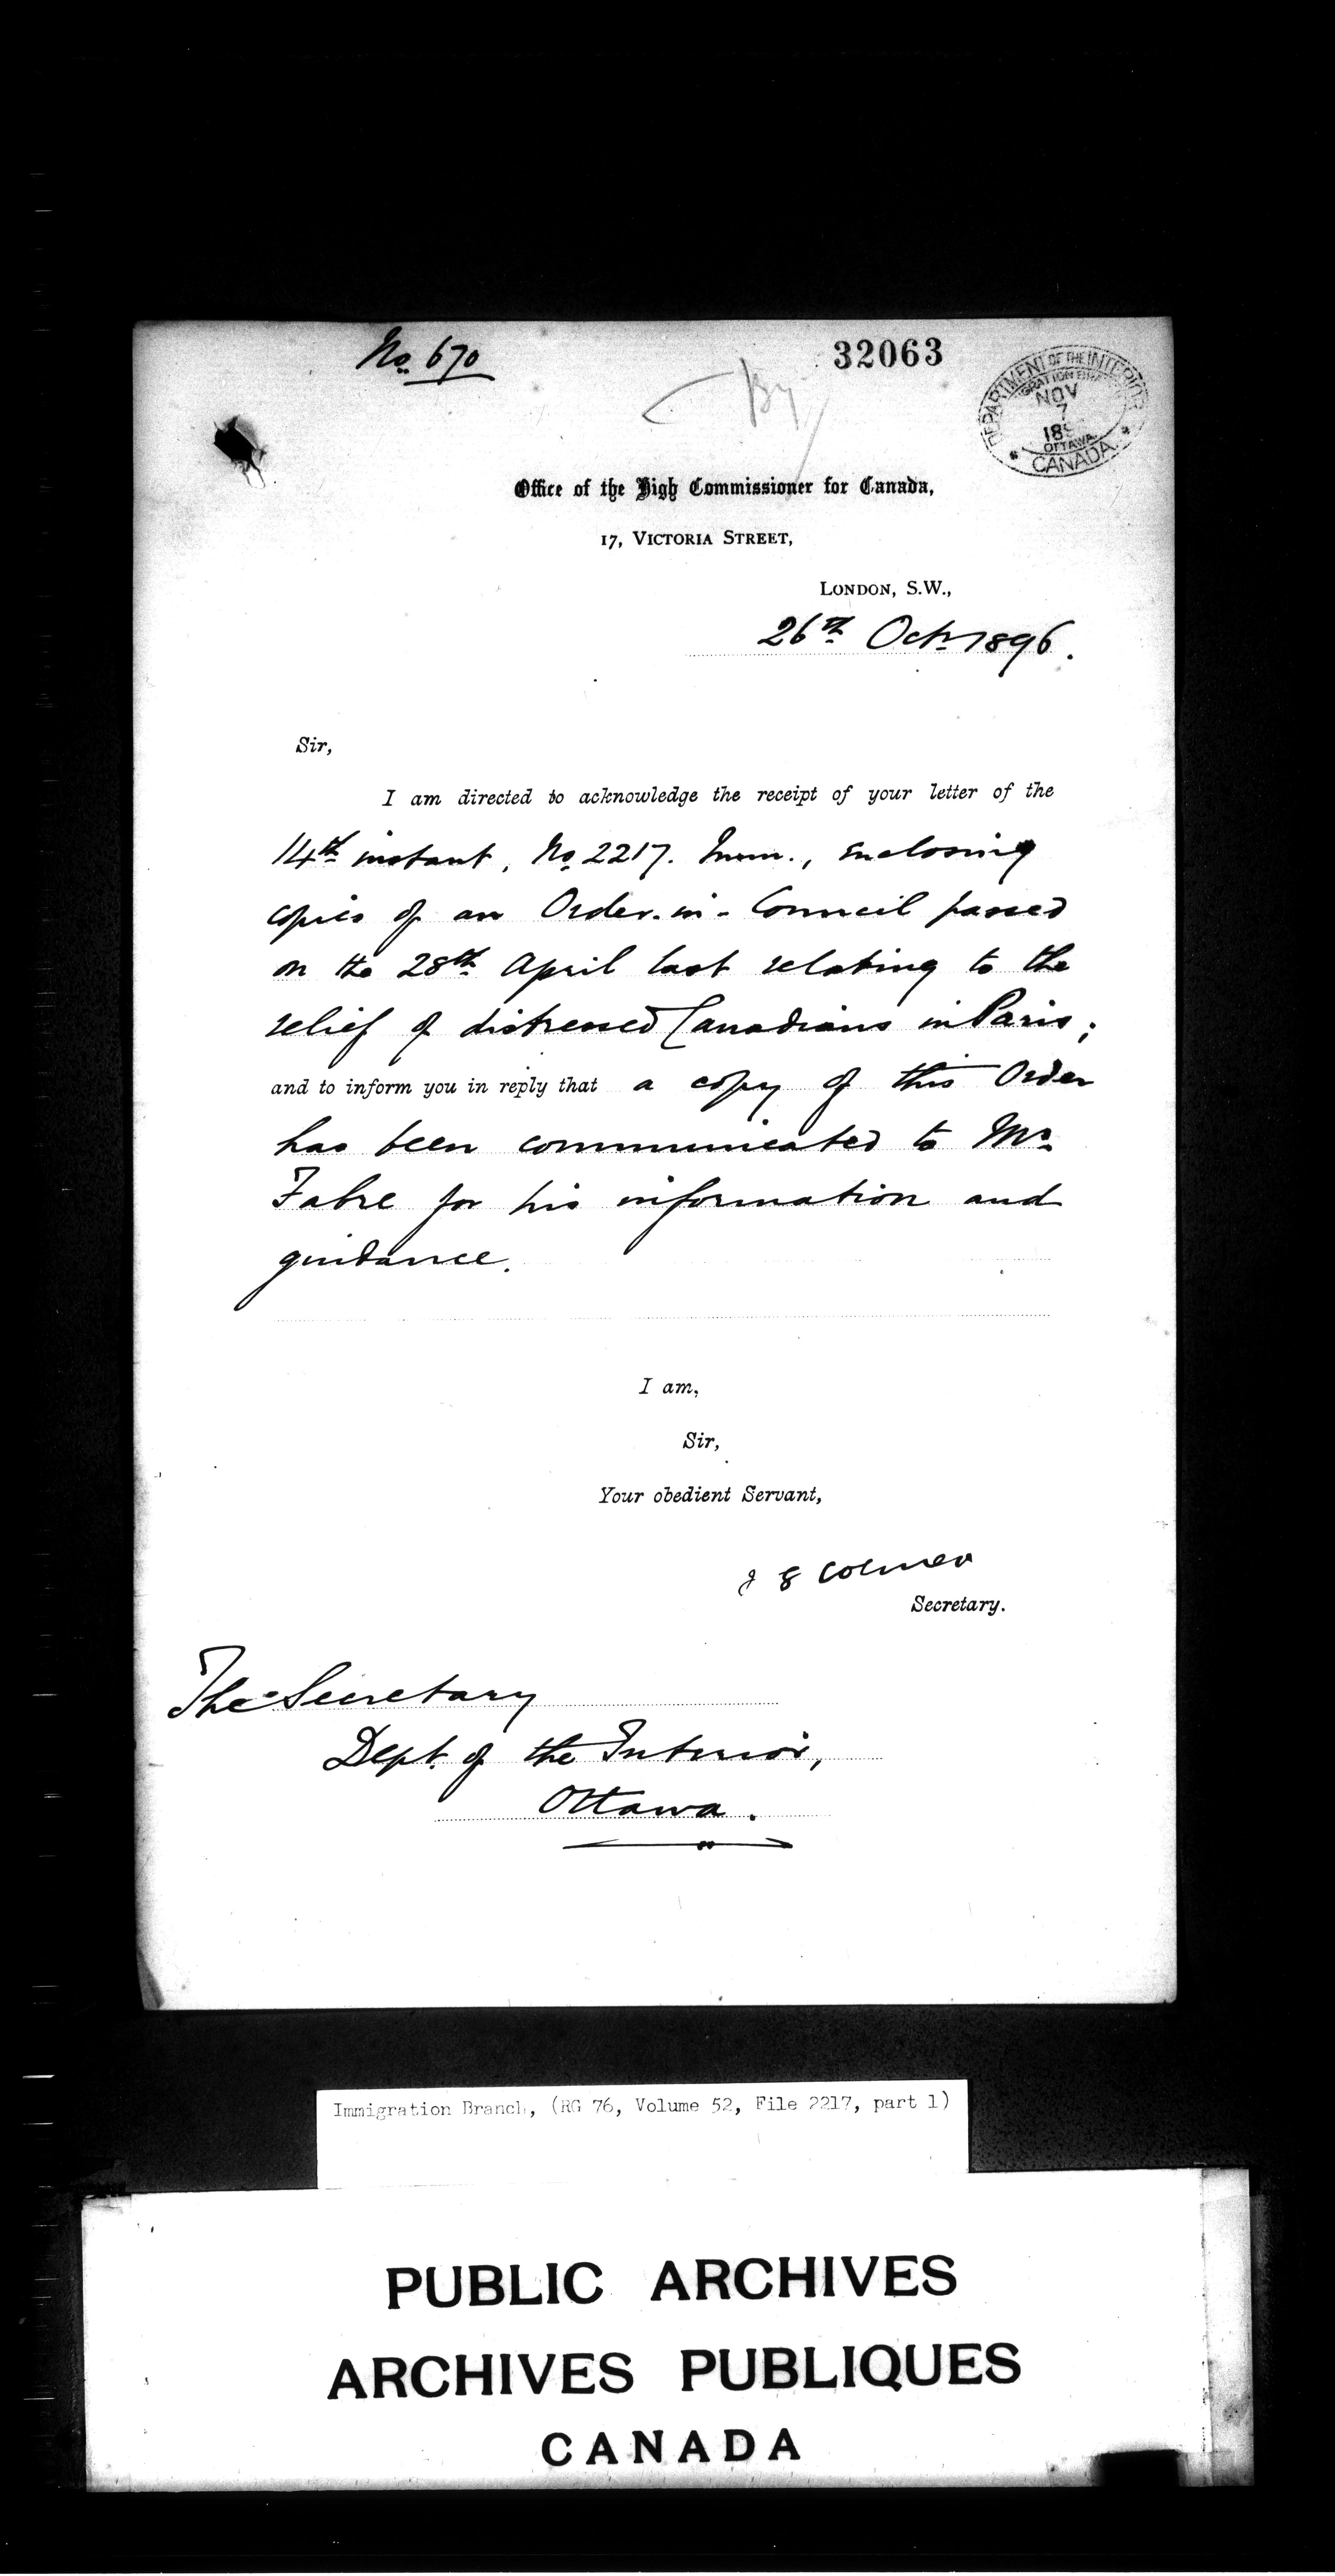 No. 670
32063
By
DEPARTMENT OF THE INTERIOR
NOV
7
OTTAWA
* CANADA. *
Office of the High Commissioner for Canada,
17, VICTORIA STREET,
LONDON, S.W.,
26th Oct. 1896.
Sir,
I am directed to acknowledge the receipt of your letter of the
14th instant, No. 2217. Imm., enclosing
copies of an Order-in-Council passed
on the 28th April last relating to the
relief of distressed Canadians in Paris;
and to inform you in reply that a copy of this Order
has been communicated to Mr.
Fabre for his information and
guidance.
I am,
Sir,
Your obedient Servant,
J G Colmer
Secretary.
The Secretary
Dept. of the Interior,
Ottawa.
Immigration Branch, (RG 76, Volume 52, File 2217, part 1)
PUBLIC ARCHIVES
ARCHIVES PUBLIQUES
CANADA